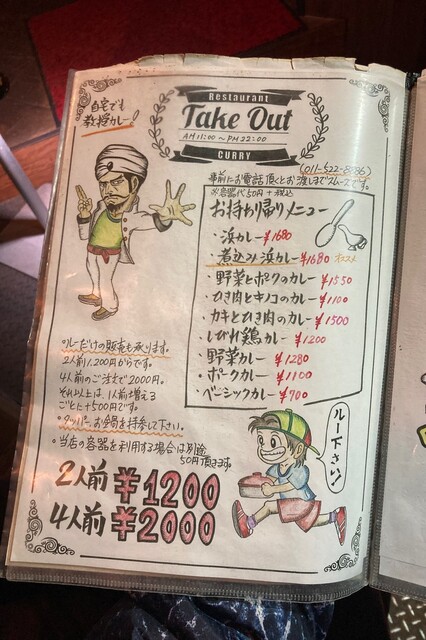 自宅でも
教授カレー!
Restaurant
Take Out
AM 11:00 〜 PM 22:00
CURRY
(011-522-8886)
事前にお電話頂くとお渡しまでスムーズです。
※容器代50円+税込
お持わり帰りメニュー
・浜カレー ¥1680
・煮込み浜カレー ¥1680 オススメ
・野菜とポークのカレー ¥1550
・ひき肉とキノコのカレー ¥1100
・カキとひき肉のカレー ¥1500
・しびれ鶏カレー ¥1200
・野菜カレー ¥1280
・ポークカレー ¥1100
・ベーシックカレー ¥700
◦ルーだけの販売も承ります。
2人前1,200円からです。
4人前のご注文で2000円。
それ以上は、1人前増える
ごとに+500円です。
◦タッパー、お鍋を持参して下さい。
◦当店の容器を利用する場合は別途
50円頂きます。
2人前 ¥1200
4人前 ¥2000
ルー下さい!